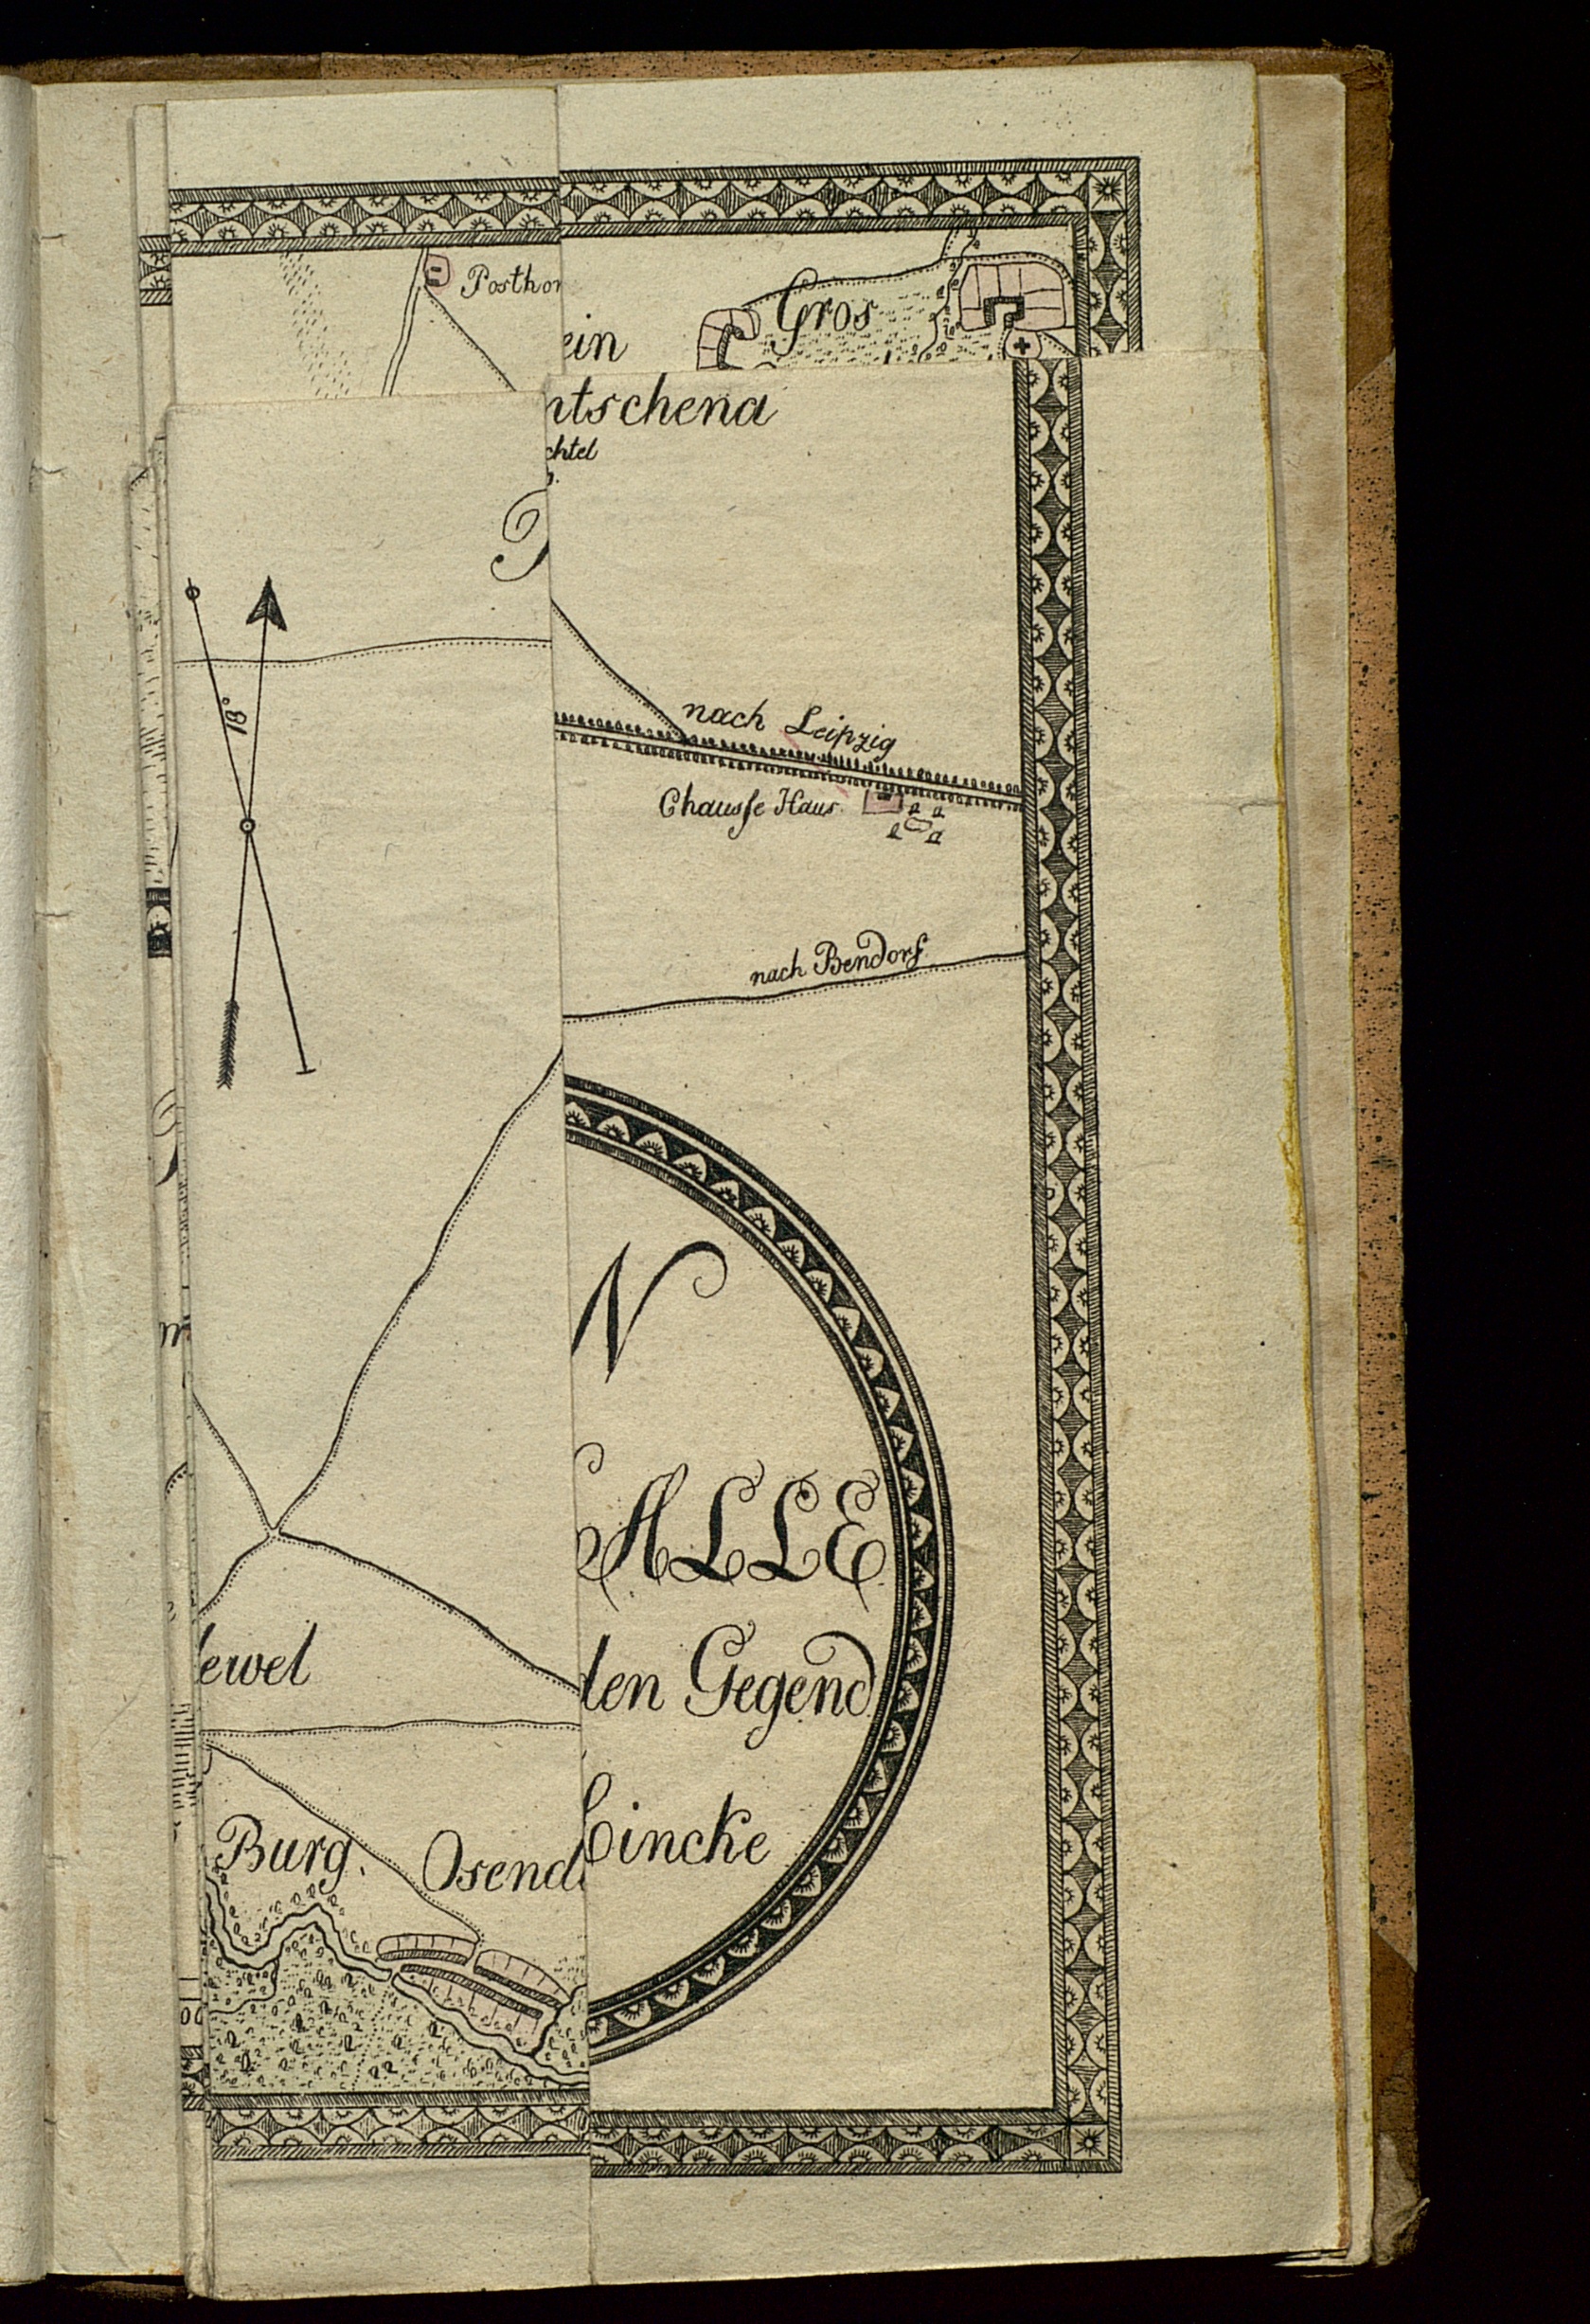 Posthor
Gros
ein
ntschena
chtel
18°
nach Leipzig
Chausse Haus
nach Bendorf
N
ALLE
ewel
den Gegend
Burg.
Osend
Cincke